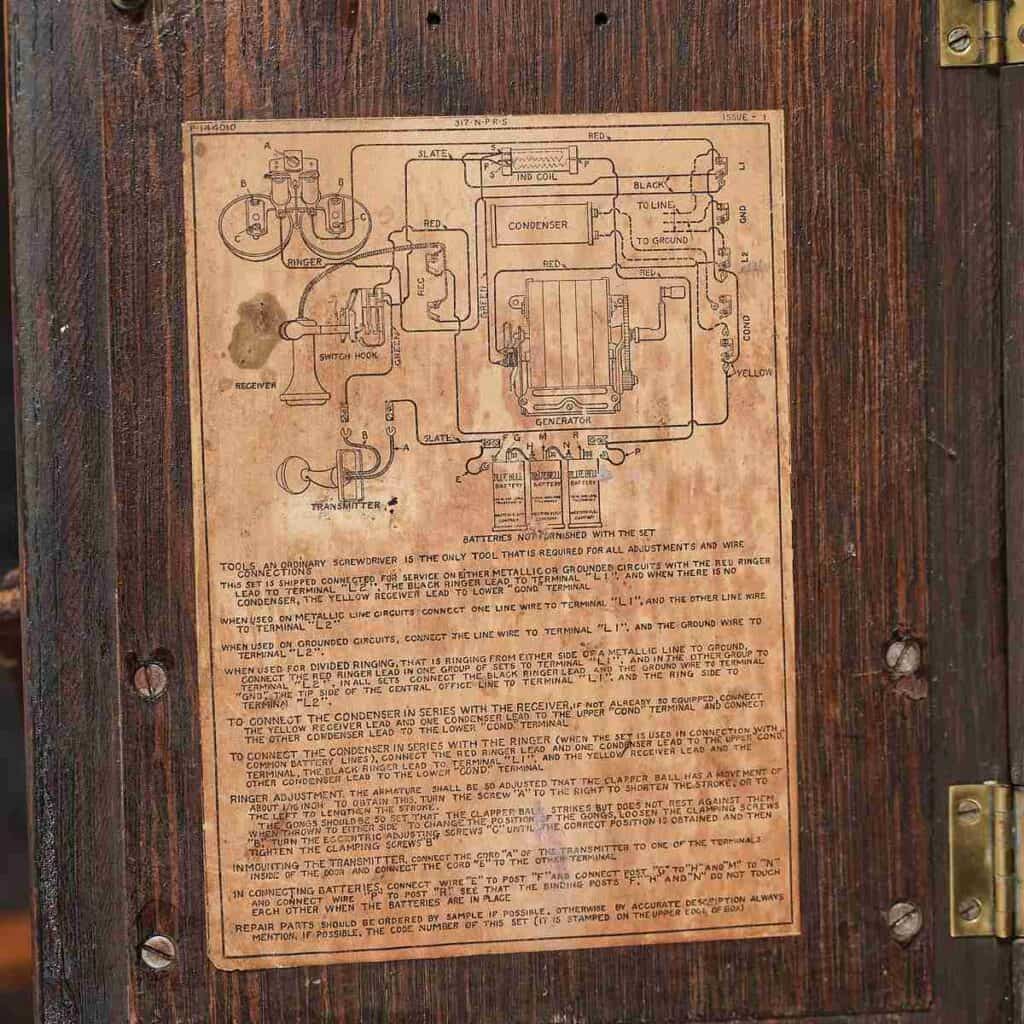 P-144010 317-N-P-R-S ISSUE - 1
RED
A
S
SLATE
P
S
P
IND COIL
L1
B B
BLACK
TO LINE
C
C
RED
CONDENSER
GND
TO GROUND
RINGER
L2
RED
RED
REC
GREEN
COND
SWITCH HOOK
GREEN
YELLOW
RECEIVER
GENERATOR
B
A
SLATE
F G M R
H N
E
P
BLUE BELL BATTERY
BLUE BELL BATTERY
BLUE BELL BATTERY
TRANSMITTER
BATTERIES NOT FURNISHED WITH THE SET
TOOLS, AN ORDINARY SCREWDRIVER IS THE ONLY TOOL THAT IS REQUIRED FOR ALL ADJUSTMENTS AND WIRE
CONNECTIONS
THIS SET IS SHIPPED CONNECTED FOR SERVICE ON EITHER METALLIC OR GROUNDED CIRCUITS WITH THE RED RINGER
LEAD TO TERMINAL "L2", THE BLACK RINGER LEAD TO TERMINAL "L1", AND WHEN THERE IS NO
CONDENSER, THE YELLOW RECEIVER LEAD TO LOWER "COND" TERMINAL
WHEN USED ON METALLIC LINE CIRCUITS CONNECT ONE LINE WIRE TO TERMINAL "L1", AND THE OTHER LINE WIRE
TO TERMINAL "L2"
WHEN USED ON GROUNDED CIRCUITS, CONNECT THE LINE WIRE TO TERMINAL "L1", AND THE GROUND WIRE TO
TERMINAL "L2".
WHEN USED FOR DIVIDED RINGING, THAT IS RINGING FROM EITHER SIDE OF A METALLIC LINE TO GROUND,
CONNECT THE RED RINGER LEAD IN ONE GROUP OF SETS TO TERMINAL "L1", AND IN THE OTHER GROUP TO
TERMINAL "L2", IN ALL SETS CONNECT THE BLACK RINGER LEAD AND THE GROUND WIRE TO TERMINAL
"GND", THE TIP SIDE OF THE CENTRAL OFFICE LINE TO TERMINAL "L1", AND THE RING SIDE TO
TERMINAL "L2".
TO CONNECT THE CONDENSER IN SERIES WITH THE RECEIVER, IF NOT ALREADY SO EQUIPPED, CONNECT
THE YELLOW RECEIVER LEAD AND ONE CONDENSER LEAD TO THE UPPER "COND" TERMINAL AND CONNECT
THE OTHER CONDENSER LEAD TO THE LOWER "COND" TERMINAL
TO CONNECT THE CONDENSER IN SERIES WITH THE RINGER (WHEN THE SET IS USED IN CONNECTION WITH
COMMON BATTERY LINES), CONNECT THE RED RINGER LEAD AND ONE CONDENSER LEAD TO THE UPPER "COND"
TERMINAL, THE BLACK RINGER LEAD TO TERMINAL "L1", AND THE YELLOW RECEIVER LEAD AND THE
OTHER CONDENSER LEAD TO THE LOWER "COND" TERMINAL
RINGER ADJUSTMENT, THE ARMATURE SHALL BE SO ADJUSTED THAT THE CLAPPER BALL HAS A MOVEMENT OF
ABOUT 1/16 INCH TO OBTAIN THIS, TURN THE SCREW "A" TO THE RIGHT TO SHORTEN THE STROKE, OR TO
THE LEFT TO LENGTHEN THE STROKE.
THE GONGS SHOULD BE SO SET THAT THE CLAPPER BALL STRIKES BUT DOES NOT REST AGAINST THEM
WHEN THROWN TO EITHER SIDE TO CHANGE THE POSITION OF THE GONGS, LOOSEN THE CLAMPING SCREWS
"B", TURN THE ECCENTRIC ADJUSTING SCREWS "C" UNTIL THE CORRECT POSITION IS OBTAINED AND THEN
TIGHTEN THE CLAMPING SCREWS "B"
IN MOUNTING THE TRANSMITTER, CONNECT THE CORD "A" OF THE TRANSMITTER TO ONE OF THE TERMINALS
INSIDE OF THE DOOR AND CONNECT THE CORD "E" TO THE OTHER TERMINAL
IN CONNECTING BATTERIES, CONNECT WIRE "E" TO POST "F" AND CONNECT POST "G" TO "H" AND "M" TO "N"
AND CONNECT WIRE "P" TO POST "R" SEE THAT THE BINDING POSTS "F", "H" AND "N" DO NOT TOUCH
EACH OTHER WHEN THE BATTERIES ARE IN PLACE
REPAIR PARTS SHOULD BE ORDERED BY SAMPLE IF POSSIBLE, OTHERWISE BY ACCURATE DESCRIPTION ALWAYS
MENTION, IF POSSIBLE, THE CODE NUMBER OF THIS SET (IT IS STAMPED ON THE UPPER EDGE OF BOX)